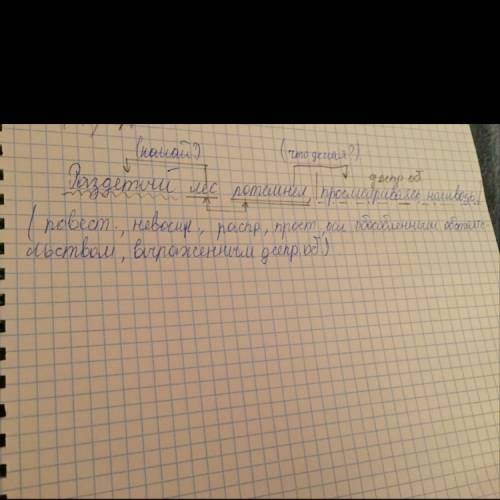 (какой?) (что делая?)
деепр.об
Раздетый лес потемнел просматриваясь насквозь
( повест., невоскл., распр., прост., осл. обособленным обстояте-
льством, выраженным деепр.об)